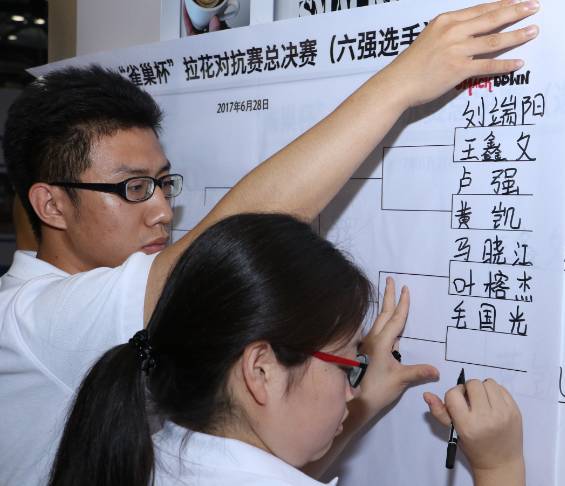 “雀巢杯”拉花对抗赛总决赛（六强选手
2017年6月28日
DOWN
刘端阳
王鑫文
卢强
黄凯
马晓江
叶榕杰
毛国光